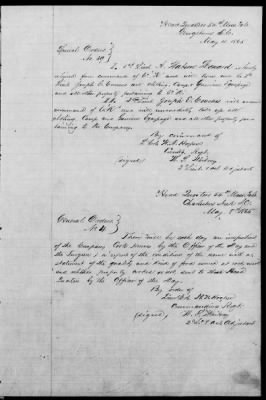 Head Quarters 54th Mass Vols
Georgetown S.C.
May 1865
Special Orders
No. 29
I. 2nd Lieut A. Watson Leonard is hereby
relieved from command of Co. "K" and will turn over to 2nd
Lieut Joseph E. Cousens all clothing, Camp & Garrison Equipage
and all other property pertaining to Co. "K".
II. 2nd Lieut Joseph E. Cousens will assume
command of Co "K" and will immediately take up all
clothing, Camp and Garrison Equipage and all other property per-
taining to the Company.
By command of
Lt Col. H. N. Hooper
Comdg Regt.
(signed)
2nd Lieut & Act Adjutant
Head Quarters 54th Mass Vols
Charleston Neck S.C.
May 8th 1865
General Orders
No. 4
There will be each day an inspection
of the Company Cook houses by the Officer of the Day and
the Surgeon; a report of the condition of the same with a
statement of the quality and kind of food served at each meal
and whether properly cooked or not, sent to these Head
Quarters by the Officer of the Day.
By order of
Lieut Col. H. N. Hooper
Commanding Regt.
(signed)
2nd Lt & Act Adjutant